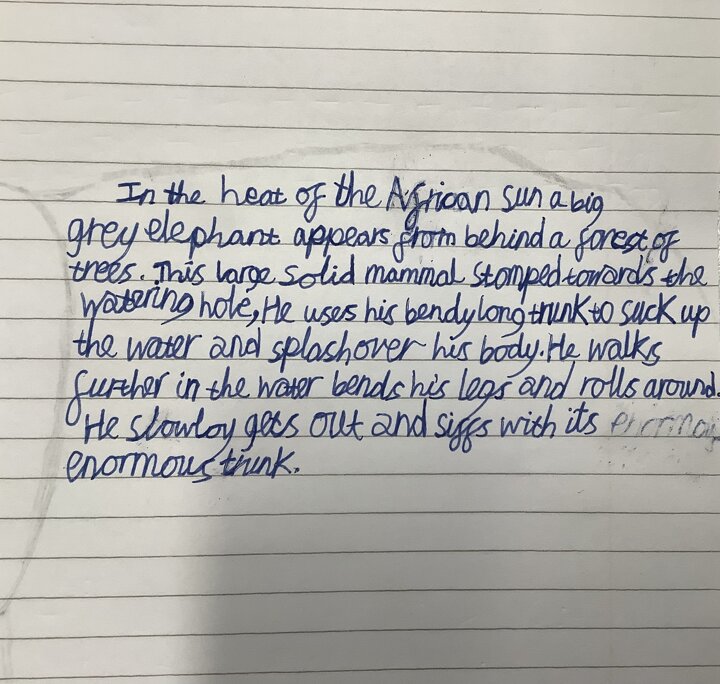 In the heat of the African sun a big
grey elephant appears from behind a forest of
trees. This large solid mammal stomped towards the
watering hole, He uses his bendy long trunk to suck up
the water and splash over his body. He walks
further in the water bends his legs and rolls around.
He slowloy gets out and siffs with its
enormous trunk.